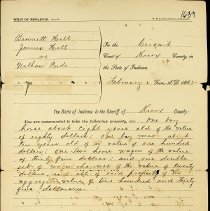 WRIT OF REPLEVIN
Bennett Hall
James Hall
vs
Nathan Pade
In the Circuit
Court of Knox Co. in
the State of Indiana.
February Term, A. D. 18
The State of Indiana, to the Sheriff of Knox County:
You are commanded to take the following property, to-wit: One bay
horse about eight years old of the value
of eighty dollars. One bay about
ten years old of the value of one hundred
dollars; one two horse wagon of the value
of thirty four dollars; and one double
set of wagon harness of the value of twenty
dollars, and all of said property of the
aggregate value of two hundred and thirty
four dollars